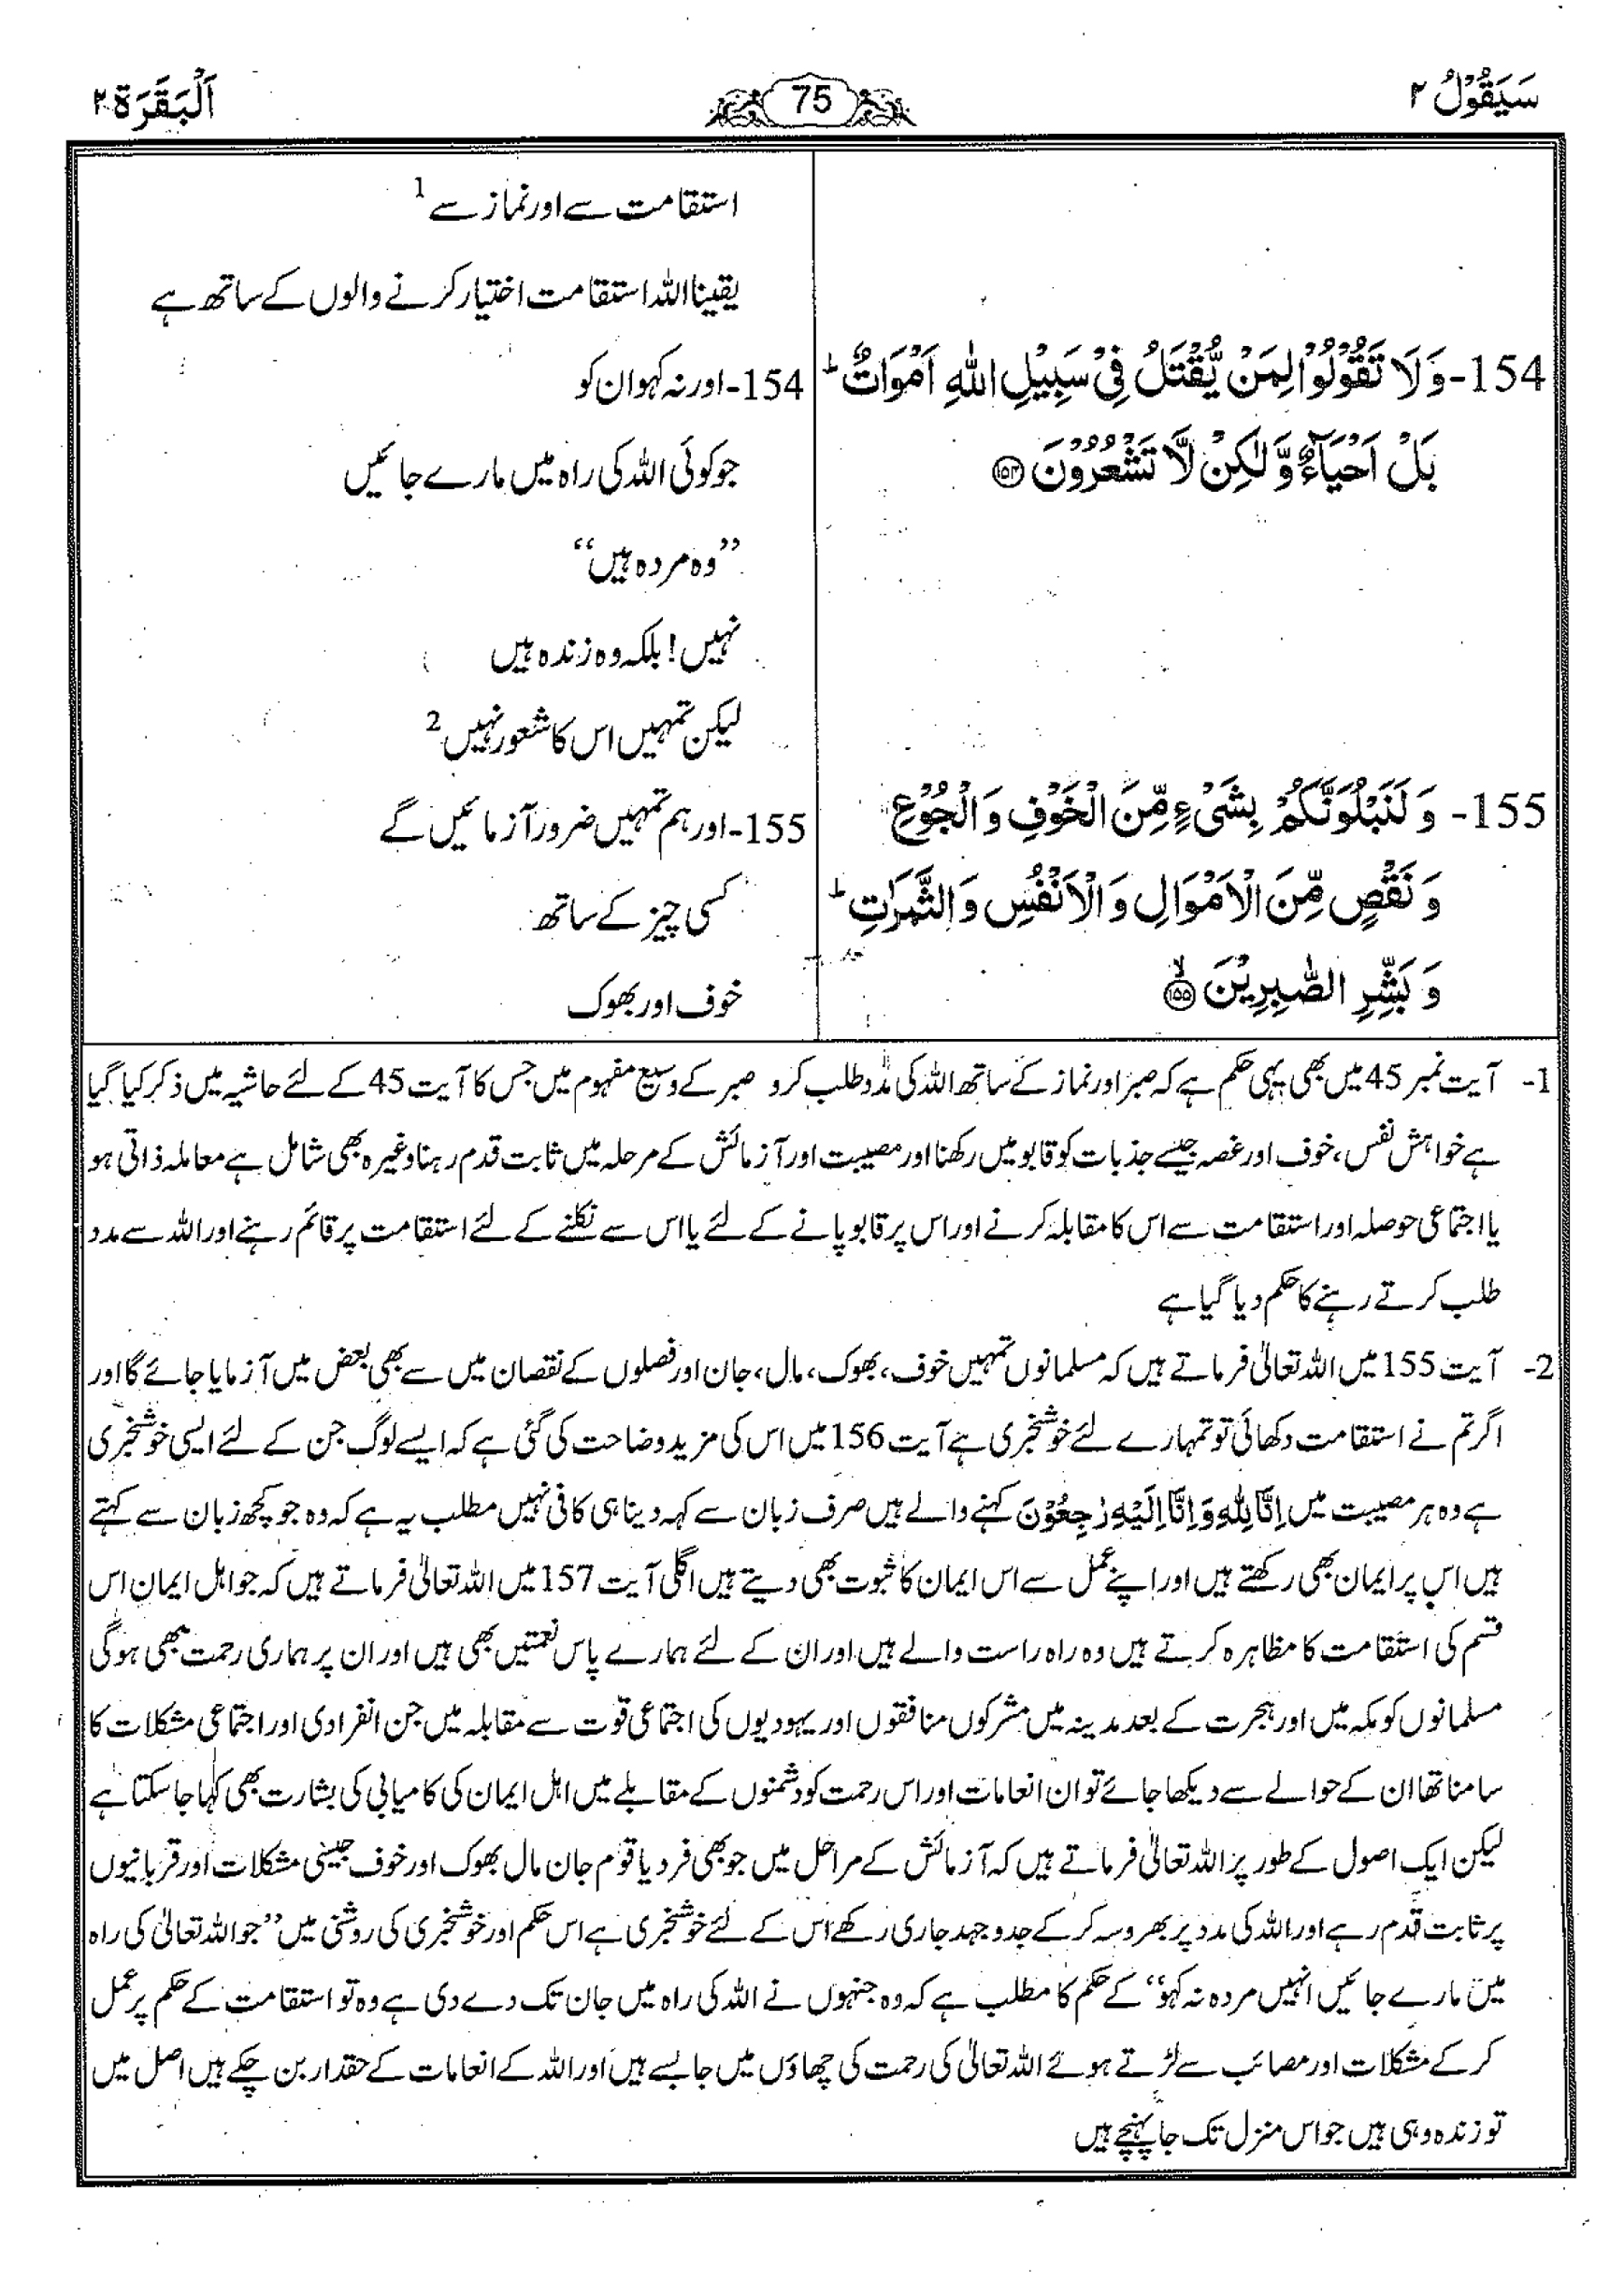 سَيَقُوْلُ ٢
75
اَلْبَقَرَة ٢
154- وَلَا تَقُوْلُوْا لِمَنْ يُّقْتَلُ فِيْ سَبِيْلِ اللّٰهِ اَمْوَاتٌ ؕ
بَلْ اَحْيَآءٌ وَّلٰكِنْ لَّا تَشْعُرُوْنَ ۝١٥٤
155- وَ لَنَبْلُوَنَّكُمْ بِشَيْءٍ مِّنَ الْخَوْفِ وَ الْجُوْعِ
وَ نَقْصٍ مِّنَ الْاَمْوَالِ وَ الْاَنْفُسِ وَ الثَّمَرٰتِ ؕ
وَ بَشِّرِ الصّٰبِرِيْنَ ۙ۝١٥٥
استقامت سے اور نماز سے 1
یقینا اللہ استقامت اختیار کرنے والوں کے ساتھ ہے
154- اور نہ کہو ان کو
جو کوئی اللہ کی راہ میں مارے جائیں
’’وہ مردہ ہیں‘‘
نہیں! بلکہ وہ زندہ ہیں
لیکن تمہیں اس کا شعور نہیں 2
155- اور ہم تمہیں ضرور آزمائیں گے
کسی چیز کے ساتھ
خوف اور بھوک
1- آیت نمبر 45 میں بھی یہی حکم ہے کہ صبر اور نماز کے ساتھ اللہ کی مدد طلب کرو صبر کے وسیع مفہوم میں جس کا آیت 45 کے لئے حاشیہ میں ذکر کیا گیا
ہے خواہش نفس، خوف اور غصہ جیسے جذبات کو قابو میں رکھنا اور مصیبت اور آزمائش کے مرحلہ میں ثابت قدم رہنا وغیرہ بھی شامل ہے معاملہ ذاتی ہو
یا اجتماعی حوصلہ اور استقامت سے اس کا مقابلہ کرنے اور اس پر قابو پانے کے لئے یا اس سے نکلنے کے لئے استقامت پر قائم رہنے اور اللہ سے مدد
طلب کرتے رہنے کا حکم دیا گیا ہے
2- آیت 155 میں اللہ تعالیٰ فرماتے ہیں کہ مسلمانوں تمہیں خوف، بھوک، مال، جان اور فصلوں کے نقصان میں سے بھی بعض میں آزمایا جائے گا اور
اگر تم نے استقامت دکھائی تو تمہارے لئے خوشخبری ہے آیت 156 میں اس کی مزید وضاحت کی گئی ہے کہ ایسے لوگ جن کے لئے ایسی خوشخبری
ہے وہ ہر مصیبت میں اِنَّا لِلّٰهِ وَ اِنَّا اِلَيْهِ رٰجِعُوْنَ کہنے والے ہیں صرف زبان سے کہہ دینا ہی کافی نہیں مطلب یہ ہے کہ وہ جو کچھ زبان سے کہتے
ہیں اس پر ایمان بھی رکھتے ہیں اور اپنے عمل سے اس ایمان کا ثبوت بھی دیتے ہیں اگلی آیت 157 میں اللہ تعالیٰ فرماتے ہیں کہ جو اہل ایمان اس
قسم کی استقامت کا مظاہرہ کرتے ہیں وہ راہ راست والے ہیں اور ان کے لئے ہمارے پاس نعمتیں بھی ہیں اور ان پر ہماری رحمت بھی ہوگی
مسلمانوں کو مکہ میں اور ہجرت کے بعد مدینہ میں مشرکوں منافقوں اور یہودیوں کی اجتماعی قوت سے مقابلہ میں جن انفرادی اور اجتماعی مشکلات کا
سامنا تھا ان کے حوالے سے دیکھا جائے تو ان انعامات اور اس رحمت کو دشمنوں کے مقابلے میں اہل ایمان کی کامیابی کی بشارت بھی کہا جا سکتا ہے
لیکن ایک اصول کے طور پر اللہ تعالیٰ فرماتے ہیں کہ آزمائش کے مراحل میں جو بھی فرد یا قوم جان مال بھوک اور خوف جیسی مشکلات اور قربانیوں
پر ثابت قدم رہے اور اللہ کی مدد پر بھروسہ کر کے جدوجہد جاری رکھے اس کے لئے خوشخبری ہے اس حکم اور خوشخبری کی روشنی میں ’’جو اللہ تعالیٰ کی راہ
میں مارے جائیں انہیں مردہ نہ کہو‘‘ کے حکم کا مطلب ہے کہ وہ جنہوں نے اللہ کی راہ میں جان تک دے دی ہے وہ تو استقامت کے حکم پر عمل
کر کے مشکلات اور مصائب سے لڑتے ہوئے اللہ تعالیٰ کی رحمت کی چھاؤں میں جا بسے ہیں اور اللہ کے انعامات کے حقدار بن چکے ہیں اصل میں
تو زندہ وہی ہیں جو اس منزل تک جا پہنچے ہیں